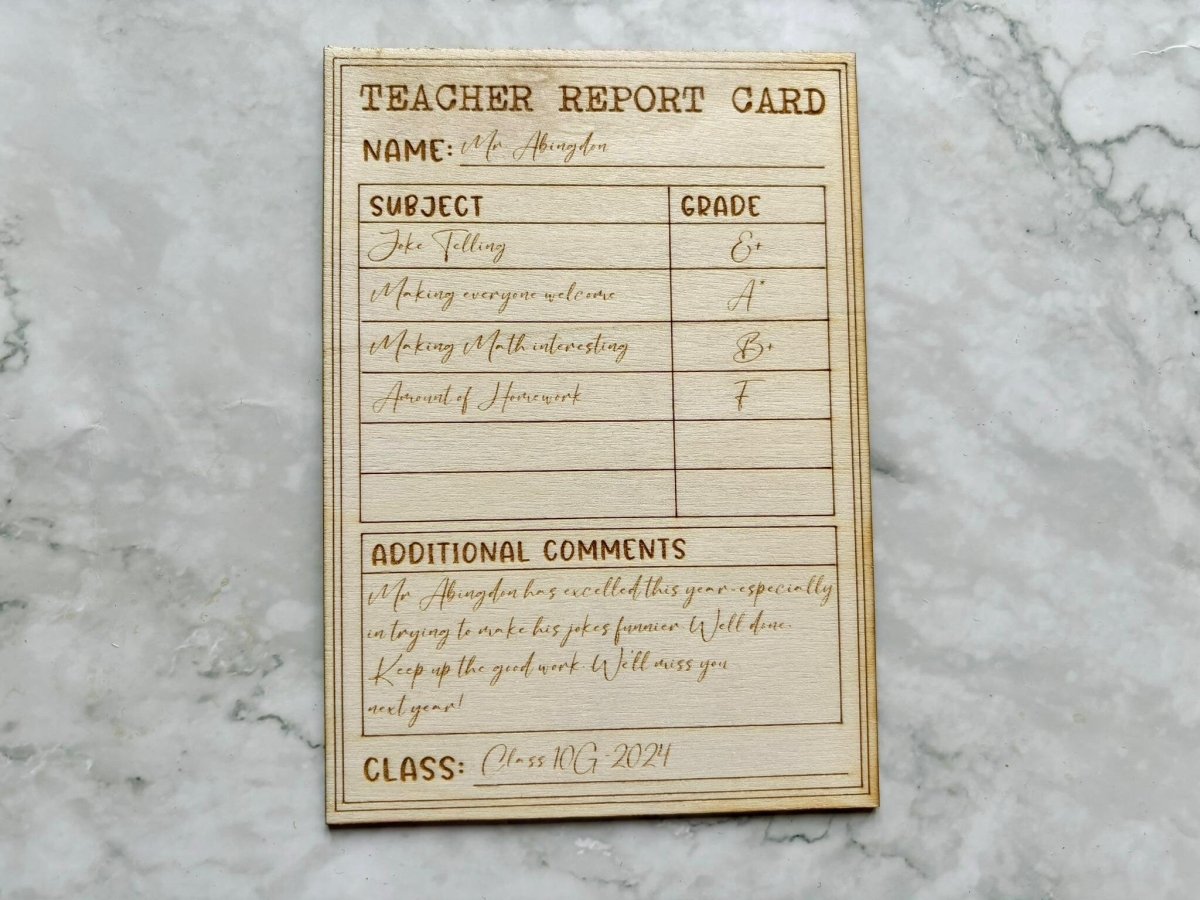 TEACHER REPORT CARD
NAME: Mr Abingdon
SUBJECT GRADE
Joke Telling E+
Making everyone welcome A*
Making Math interesting B+
Amount of Homework F
ADDITIONAL COMMENTS
Mr Abingdon has excelled this year-especially
in trying to make his jokes funnier. Well done.
Keep up the good work. We'll miss you
next year!
CLASS: Class 10G - 2024